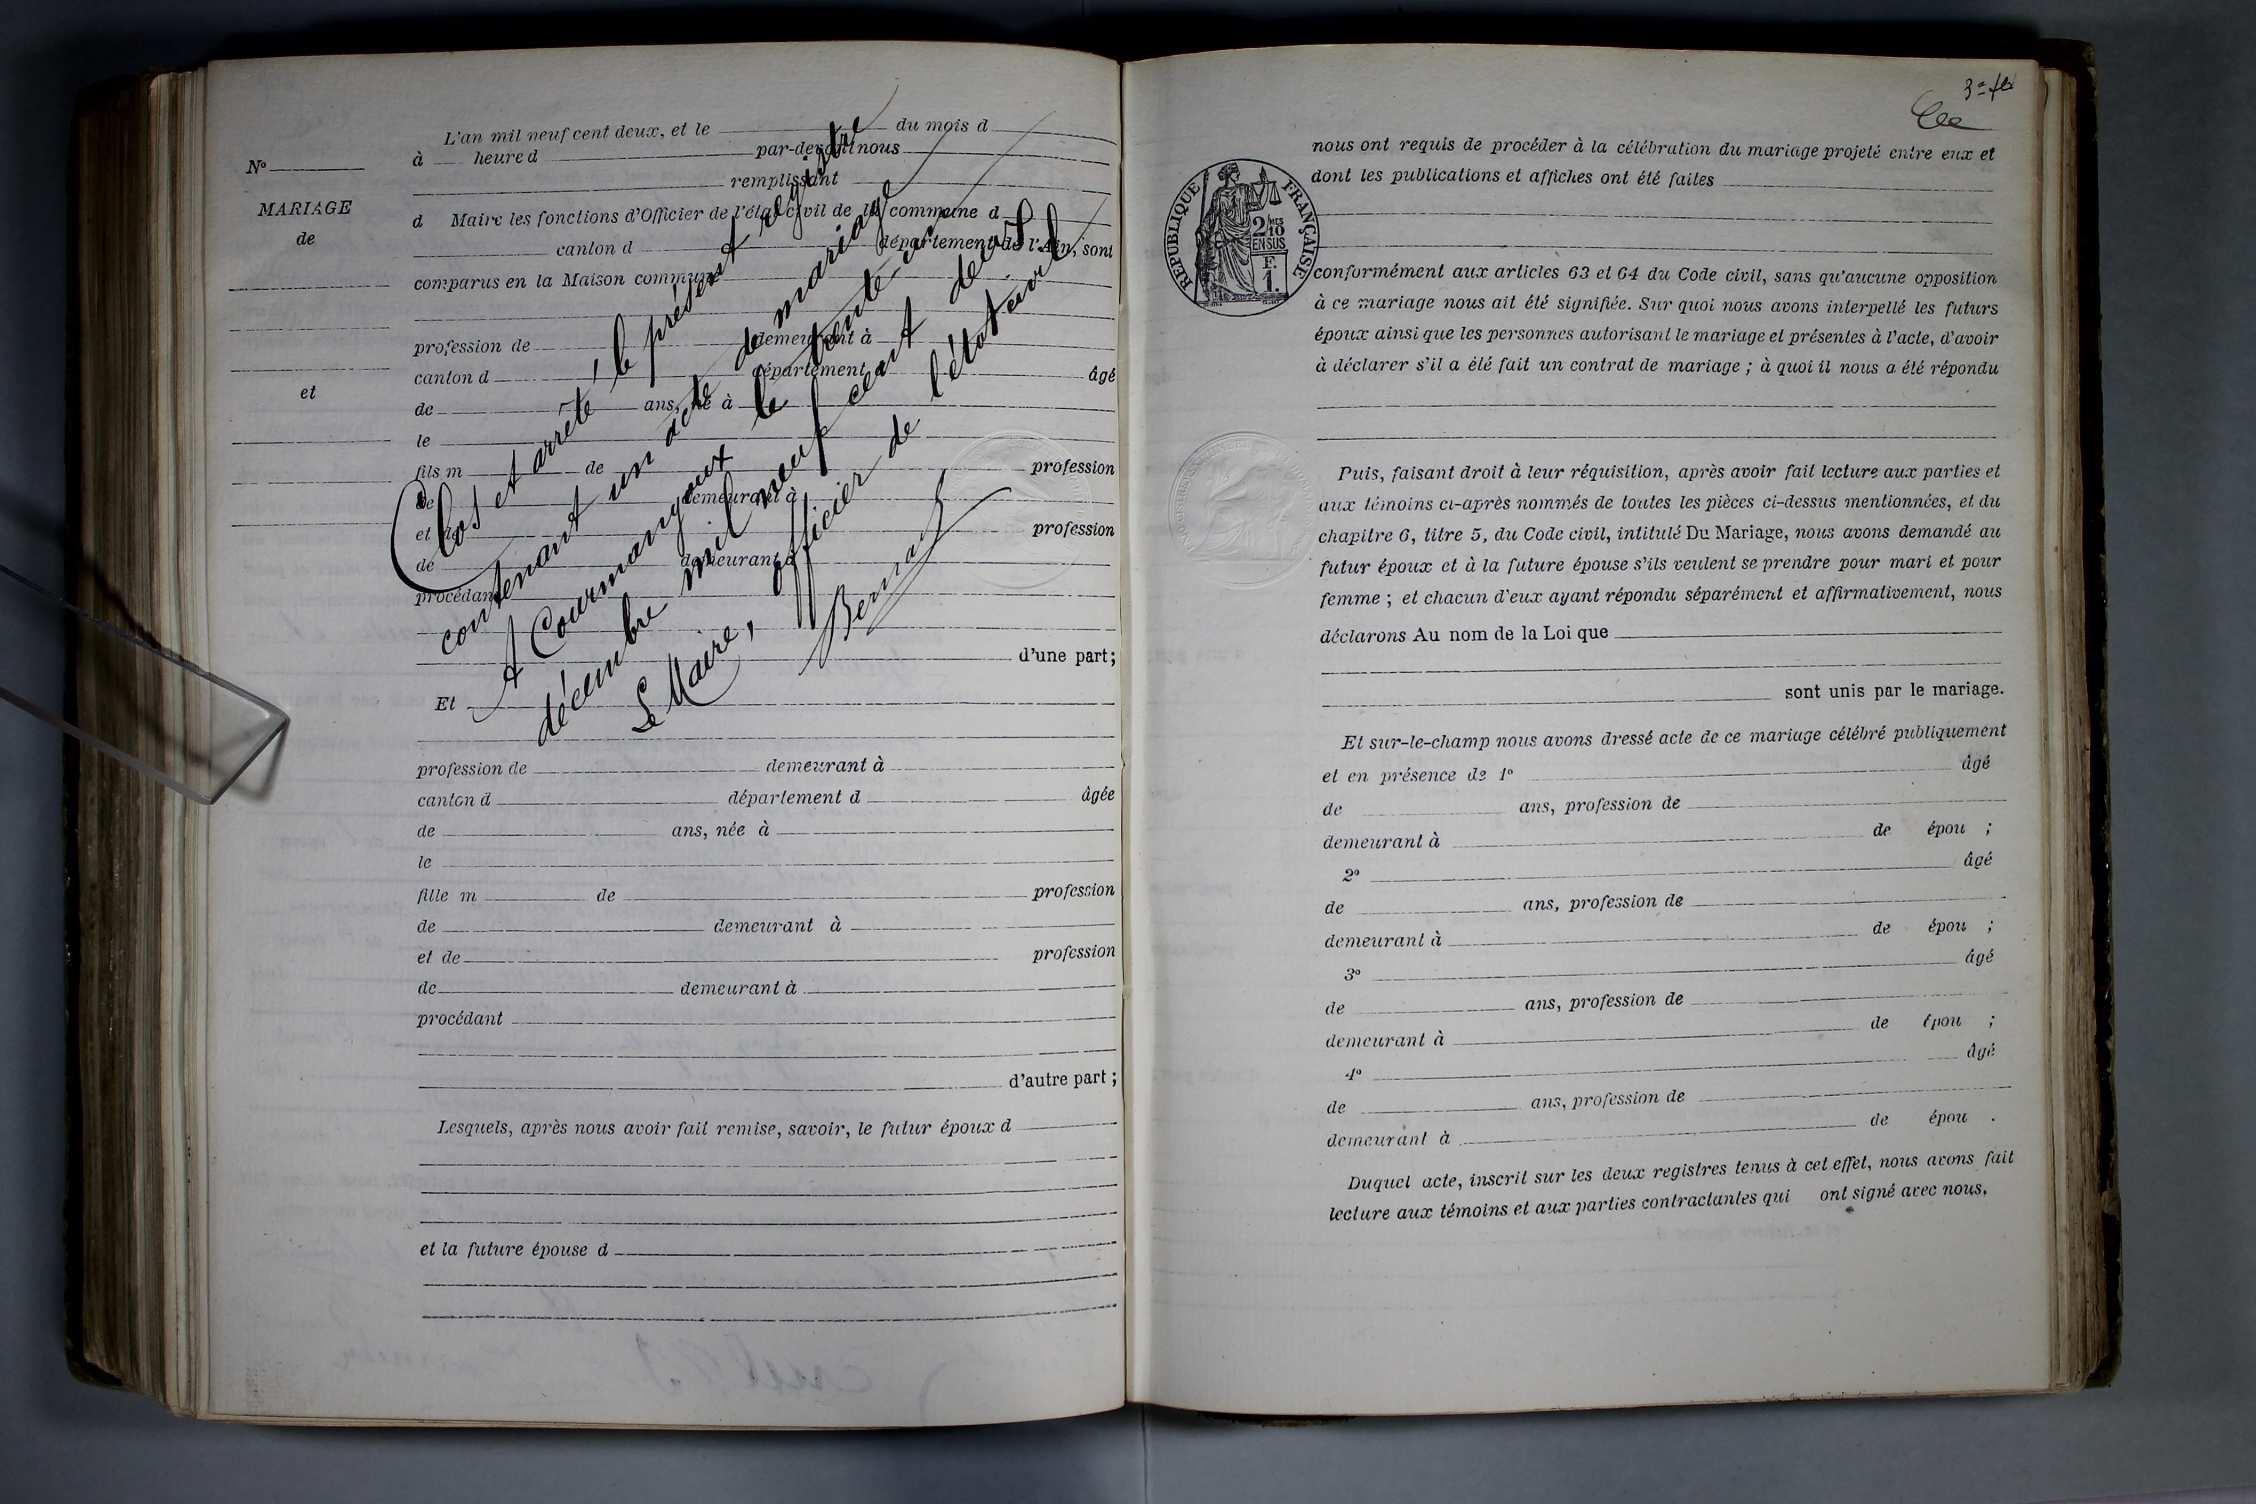 L'an mil neuf cent deux, et le du mois d
à heure d par-devant nous
remplissant
d Maire les fonctions d'Officier de l'état civil de la commune d
canton d département de l'Ain, sont
comparus en la Maison commune
profession de demeurant à
canton d département âgé
de ans, né à
le
fils m de profession
de demeurant à
et de profession
de demeurant à
procédant
d'une part;
Et
profession de demeurant à
canton d département d âgée
de ans, née à
le
fille m de profession
de demeurant à
et de profession
de demeurant à
procédant
d'autre part;
Lesquels, après nous avoir fait remise, savoir, le futur époux d
et la future épouse d
No
MARIAGE
de
et
Clos et arrêté le présent registre
contenant un acte de mariage
A Courmangoux le trente un
décembre mil neuf cent deux
Le Maire, officier de l'état civil
3e
nous ont requis de procéder à la célébration du mariage projeté entre eux et
dont les publications et affiches ont été faites
RÉPUBLIQUE FRANÇAISE
2/10 MES
EN SUS
F.
1.
conformément aux articles 63 et 64 du Code civil, sans qu'aucune opposition
à ce mariage nous ait été signifiée. Sur quoi nous avons interpellé les futurs
époux ainsi que les personnes autorisant le mariage et présentes à l'acte, d'avoir
à déclarer s'il a été fait un contrat de mariage ; à quoi il nous a été répondu
Puis, faisant droit à leur réquisition, après avoir fait lecture aux parties et
aux témoins ci-après nommés de toutes les pièces ci-dessus mentionnées, et du
chapitre 6, titre 5, du Code civil, intitulé Du Mariage, nous avons demandé au
futur époux et à la future épouse s'ils veulent se prendre pour mari et pour
femme ; et chacun d'eux ayant répondu séparément et affirmativement, nous
déclarons Au nom de la Loi que
sont unis par le mariage.
Et sur-le-champ nous avons dressé acte de ce mariage célébré publiquement
et en présence de 1o âgé
de ans, profession de
demeurant à de épou ;
2o âgé
de ans, profession de
demeurant à de épou ;
3o âgé
de ans, profession de
demeurant à de épou ;
4o âgé
de ans, profession de
demeurant à de épou .
Duquel acte, inscrit sur les deux registres tenus à cet effet, nous avons fait
lecture aux témoins et aux parties contractantes qui ont signé avec nous.